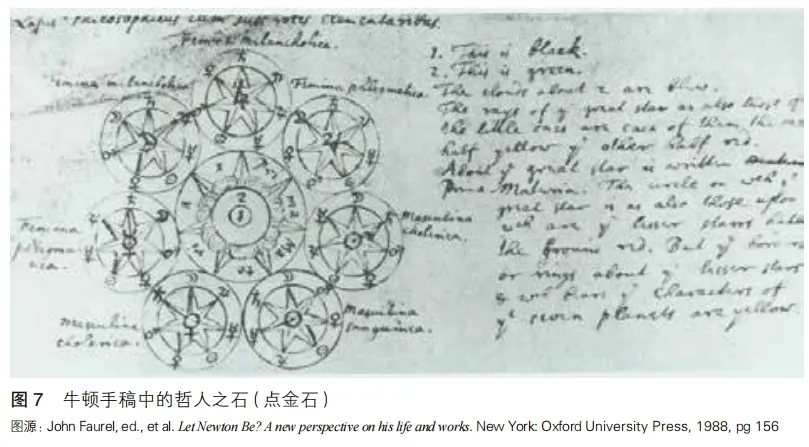 Lapis Philosophicus cum suis rotis elementaribus.
Femina melancholica.
Femina melancholica
Femina phlegmatica.
Femina
phlegmatica.
Masculina
cholerica.
Masculina
cholerica.
Masculina
sanguinea.
2
1
1. This is black.
2. This is green.
The clouds about 2 are blew.
The rays of yᵉ great star as also those of
the little ones are each of them the one
half yellow yᵉ other half red.
About yᵉ great star is written
Prima Materia. The circle on wᶜʰ yᵉ
great star is as also those upon
wᶜʰ are yᵉ lesser starrs hath
the ground red. But yᵉ
or rings about yᵉ lesser starrs
wᶜʰ bears yᵉ characters of
yᵉ seven planets are yellow.
图7 牛顿手稿中的哲人之石(点金石)
图源: John Faurel, ed., et al. Let Newton Be? A new perspective on his life and works. New York: Oxford University Press, 1988, pg 156